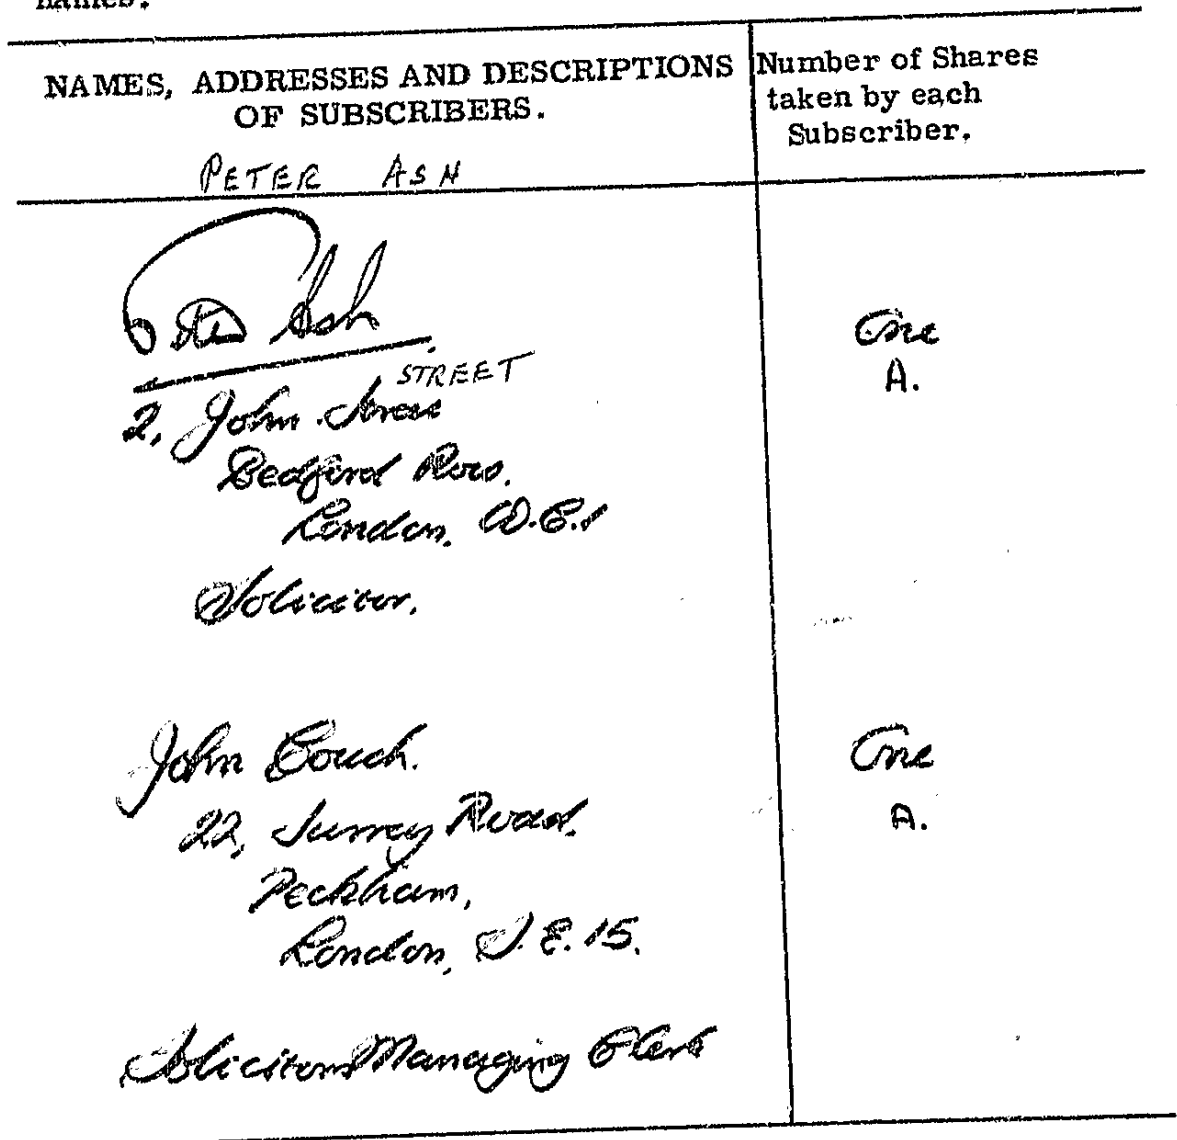 names.
NAMES, ADDRESSES AND DESCRIPTIONS
OF SUBSCRIBERS.
Number of Shares
taken by each
Subscriber.
PETER ASH
Peter Ash
One
A.
STREET
2, John Street
Bedford Row.
London. W.C.1
Solicitor.
John Couch.
One
22, Surrey Road.
A.
Peckham,
London, S.E.15.
Solicitors Managing Clerk